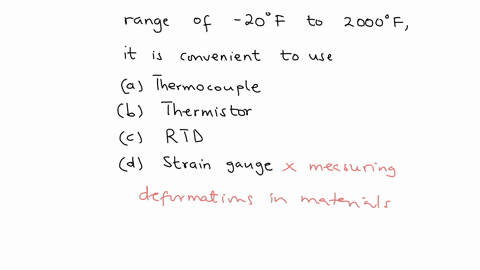 range of -20°F to 2000°F,
it is convenient to use
(a) Thermocouple
(b) Thermistor
(c) RTD
(d) Strain gauge x measuring
deformations in materials